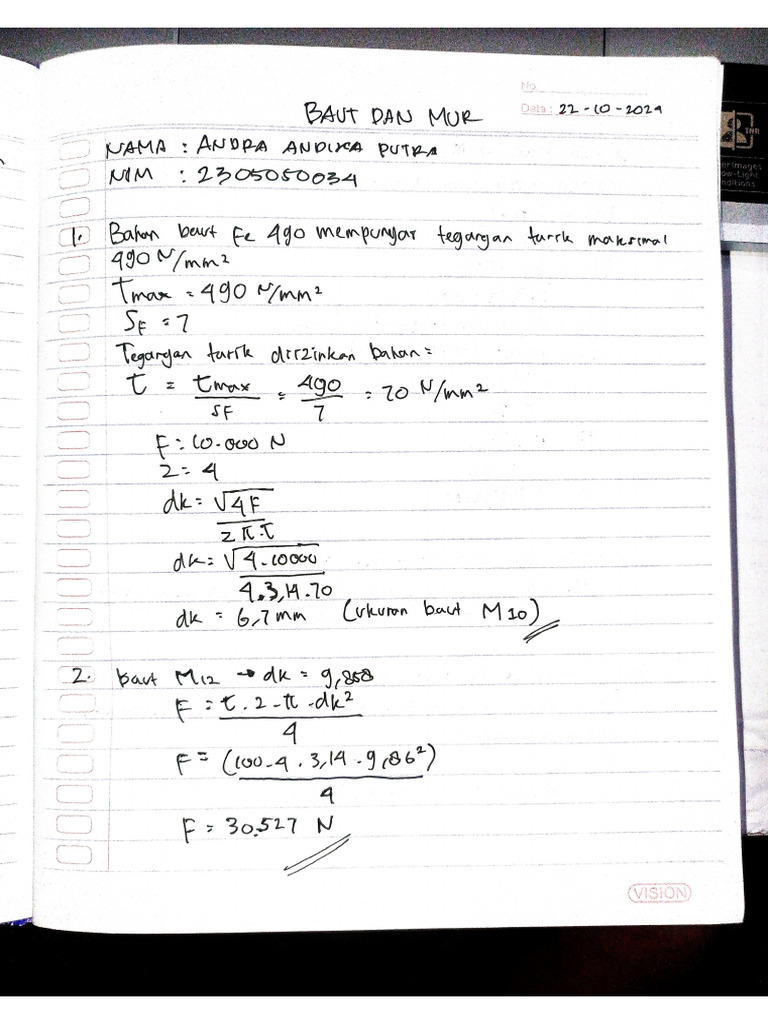 No.
BAUT DAN MUR
Date: 22-10-2024
NAMA : ANDRA ANDIKA PUTRA
NIM : 2305050034
1. Bahan baut Fe 490 mempunyai tegangan tarik maksimal
490 N/mm²
τmax = 490 N/mm²
SF = 7
Tegangan tarik diizinkan bahan =
τ = τmax/SF = 490/7 = 70 N/mm²
F = 10.000 N
z = 4
dk = √4F / z π.τ
dk = √4.10000 / 4.3,14.70
dk = 6,7 mm (ukuran baut M10)
2. baut M12 → dk = 9,858
F = τ . z . π . dk² / 4
F = (100.4.3,14.9,86²) / 4
F = 30.527 N
VISION
TNR